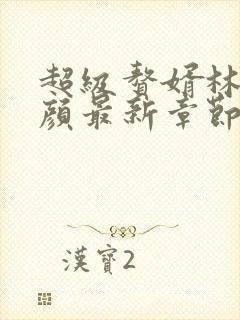 超級贅婿林
顔最新章節
漢寶2